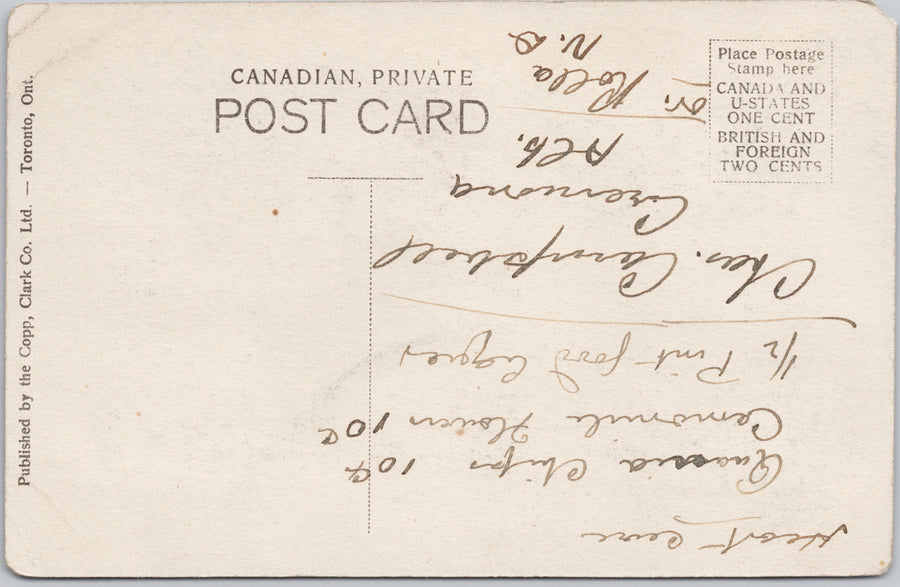 CANADIAN, PRIVATE
POST CARD
Place Postage
Stamp here
CANADA AND
U-STATES
ONE CENT
BRITISH AND
FOREIGN
TWO CENTS
Published by the Copp, Clark Co. Ltd. — Toronto, Ont.
Heart Cure
Quassia Chips 10¢
Camomile Flowers 10¢
1/2 Pint good
Chas. Campbell
Cremona
Alb.
or, Rolla
N.D